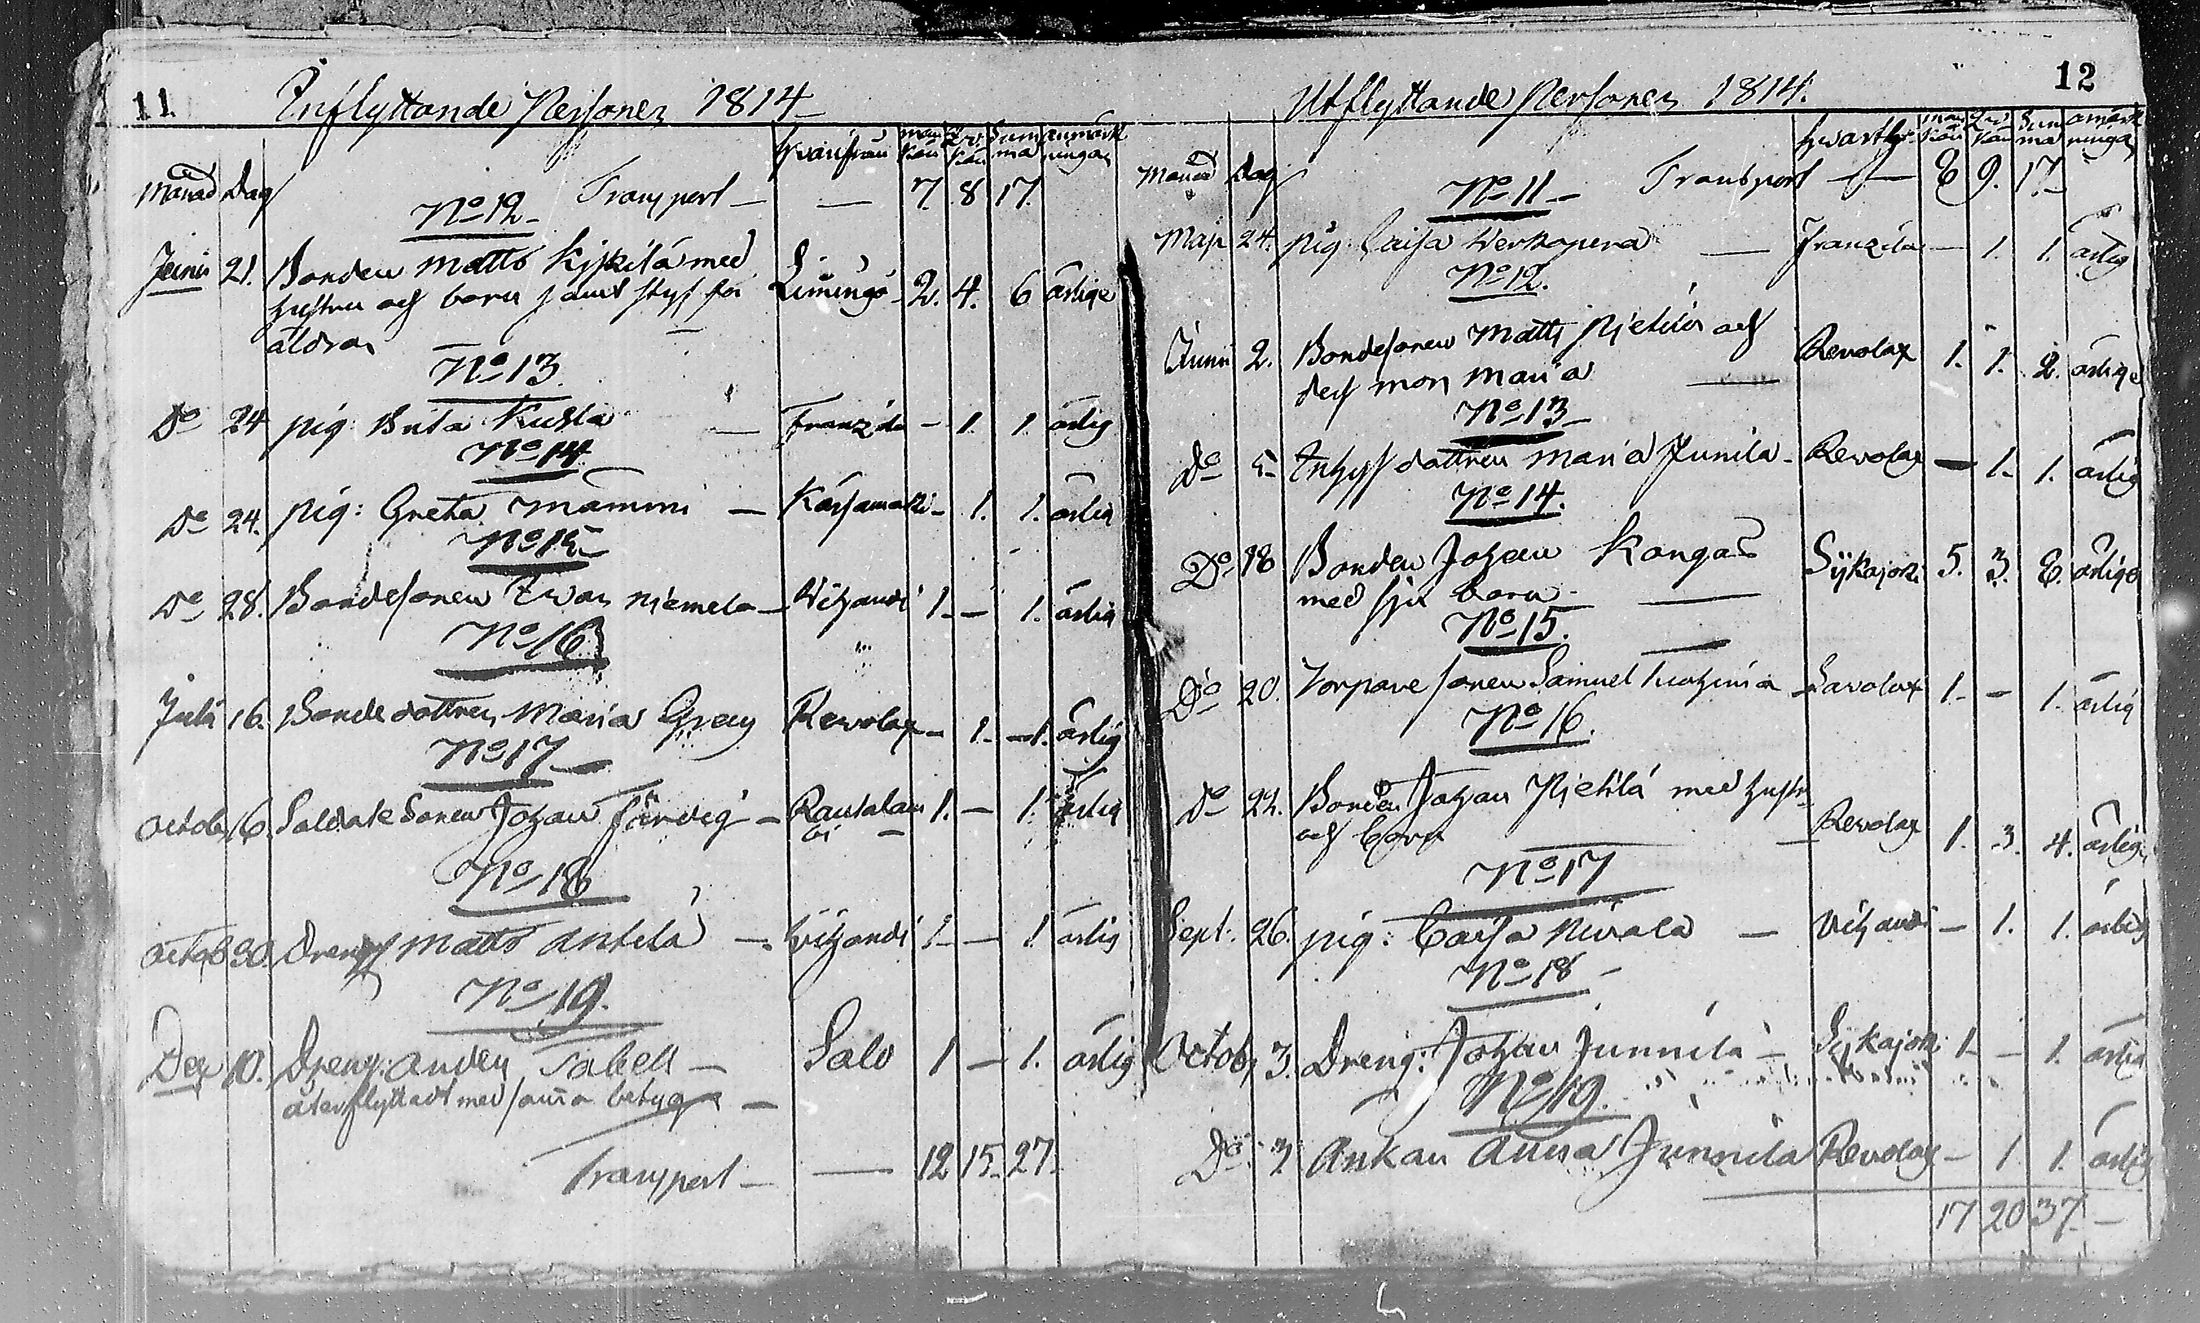 11. Inflyttande Personer 1814
Hvarifrån man kön Summa anmärkningar
Månad Dag
No 12 Transport — — 7. 8 17.
Junii 21. Bonden Matts Kiskilä med Limingo 2. 4. 6 ärlige
hustru och barn samt styf för
äldrar
No 13
Do 24 pig: Brita Kusla — Franzila — 1. 1. ärlig
No 14
Do 24. pig: Greta Mammi — Kärsämäki — 1. 1. ärlig
No 15
Do 28. Bondesonen Ivar Niemelä — Vihandi 1. — 1. ärlig
No 16
Julii 16. Bondedottren Maria Greus Revolax — 1. — 1. ärlig
No 17
Octob. 16. Soldate Sonen Johan Färdig — Rautalambi 1. — 1. ärlig
No 18
Octob 30. Dreng Matts Anttila — Vihandi 1. — 1. ärlig
No 19.
Dec 10. Dreng: Anders Tabell — Salo 1 — 1. ärlig
återflyttadt med samma betyg —
Transport — — 12 15 27.
12
Utflyttande Personer 1814.
hvarthän man kön Summa anmärkningar
Månad Dag
No 11 — Transport — 8 9. 17
Maji 24. pig: Caisa Werkapera — Franzila — 1. 1. ärlig
No 12.
Junii 2. Bondesonen Matts Pietilä och Revolax 1. 1. 2. ärlige
dess mor Maria —
No 13
Do 5 Inhys dottren Maria Junila — Revolax — 1. 1. ärlig
No 14.
Do 18 Bonden Johan Kangas Sijkajoki 5. 3. 8. ärlige
med sju barn —
No 15.
Do 20. Torpare sonen Samuel Tuohimä — Savolax 1. — 1. ärlig
No 16.
Do 22. Bonden Johan Pietilä med hustru
och barn — Revolax 1. 3. 4. ärlige
No 17
Sept: 26. pig: Caisa Nivala — Vihandi — 1. 1. ärlig
No 18 —
Octob. 3. Dreng: Johan Junnila — Sijkajoki 1. — 1. ärlig
No 19.
Do 3 Ankan Anna Junnila Revolax — 1 1. ärlig
17 20 37 —